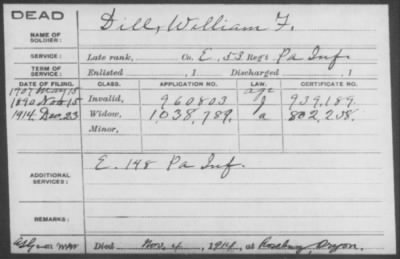 DEAD
NAME OF SOLDIER: Dill, William F.
SERVICE: Late rank, Co. E, 53 Reg't Pa Inf.
TERM OF SERVICE: Enlisted , 1 Discharged , 1
DATE OF FILING. CLASS. APPLICATION NO. LAW. CERTIFICATE NO.
1907 May 15 age
1890 Nov 15 Invalid, 960803 J 939,189.
1914 Dec. 23 Widow, 1,038,789. a 802,208.
Minor,
ADDITIONAL SERVICES: E. 148 Pa Inf.
REMARKS:
Died Nov. 4, 1914, at Roseburg, Oregon.